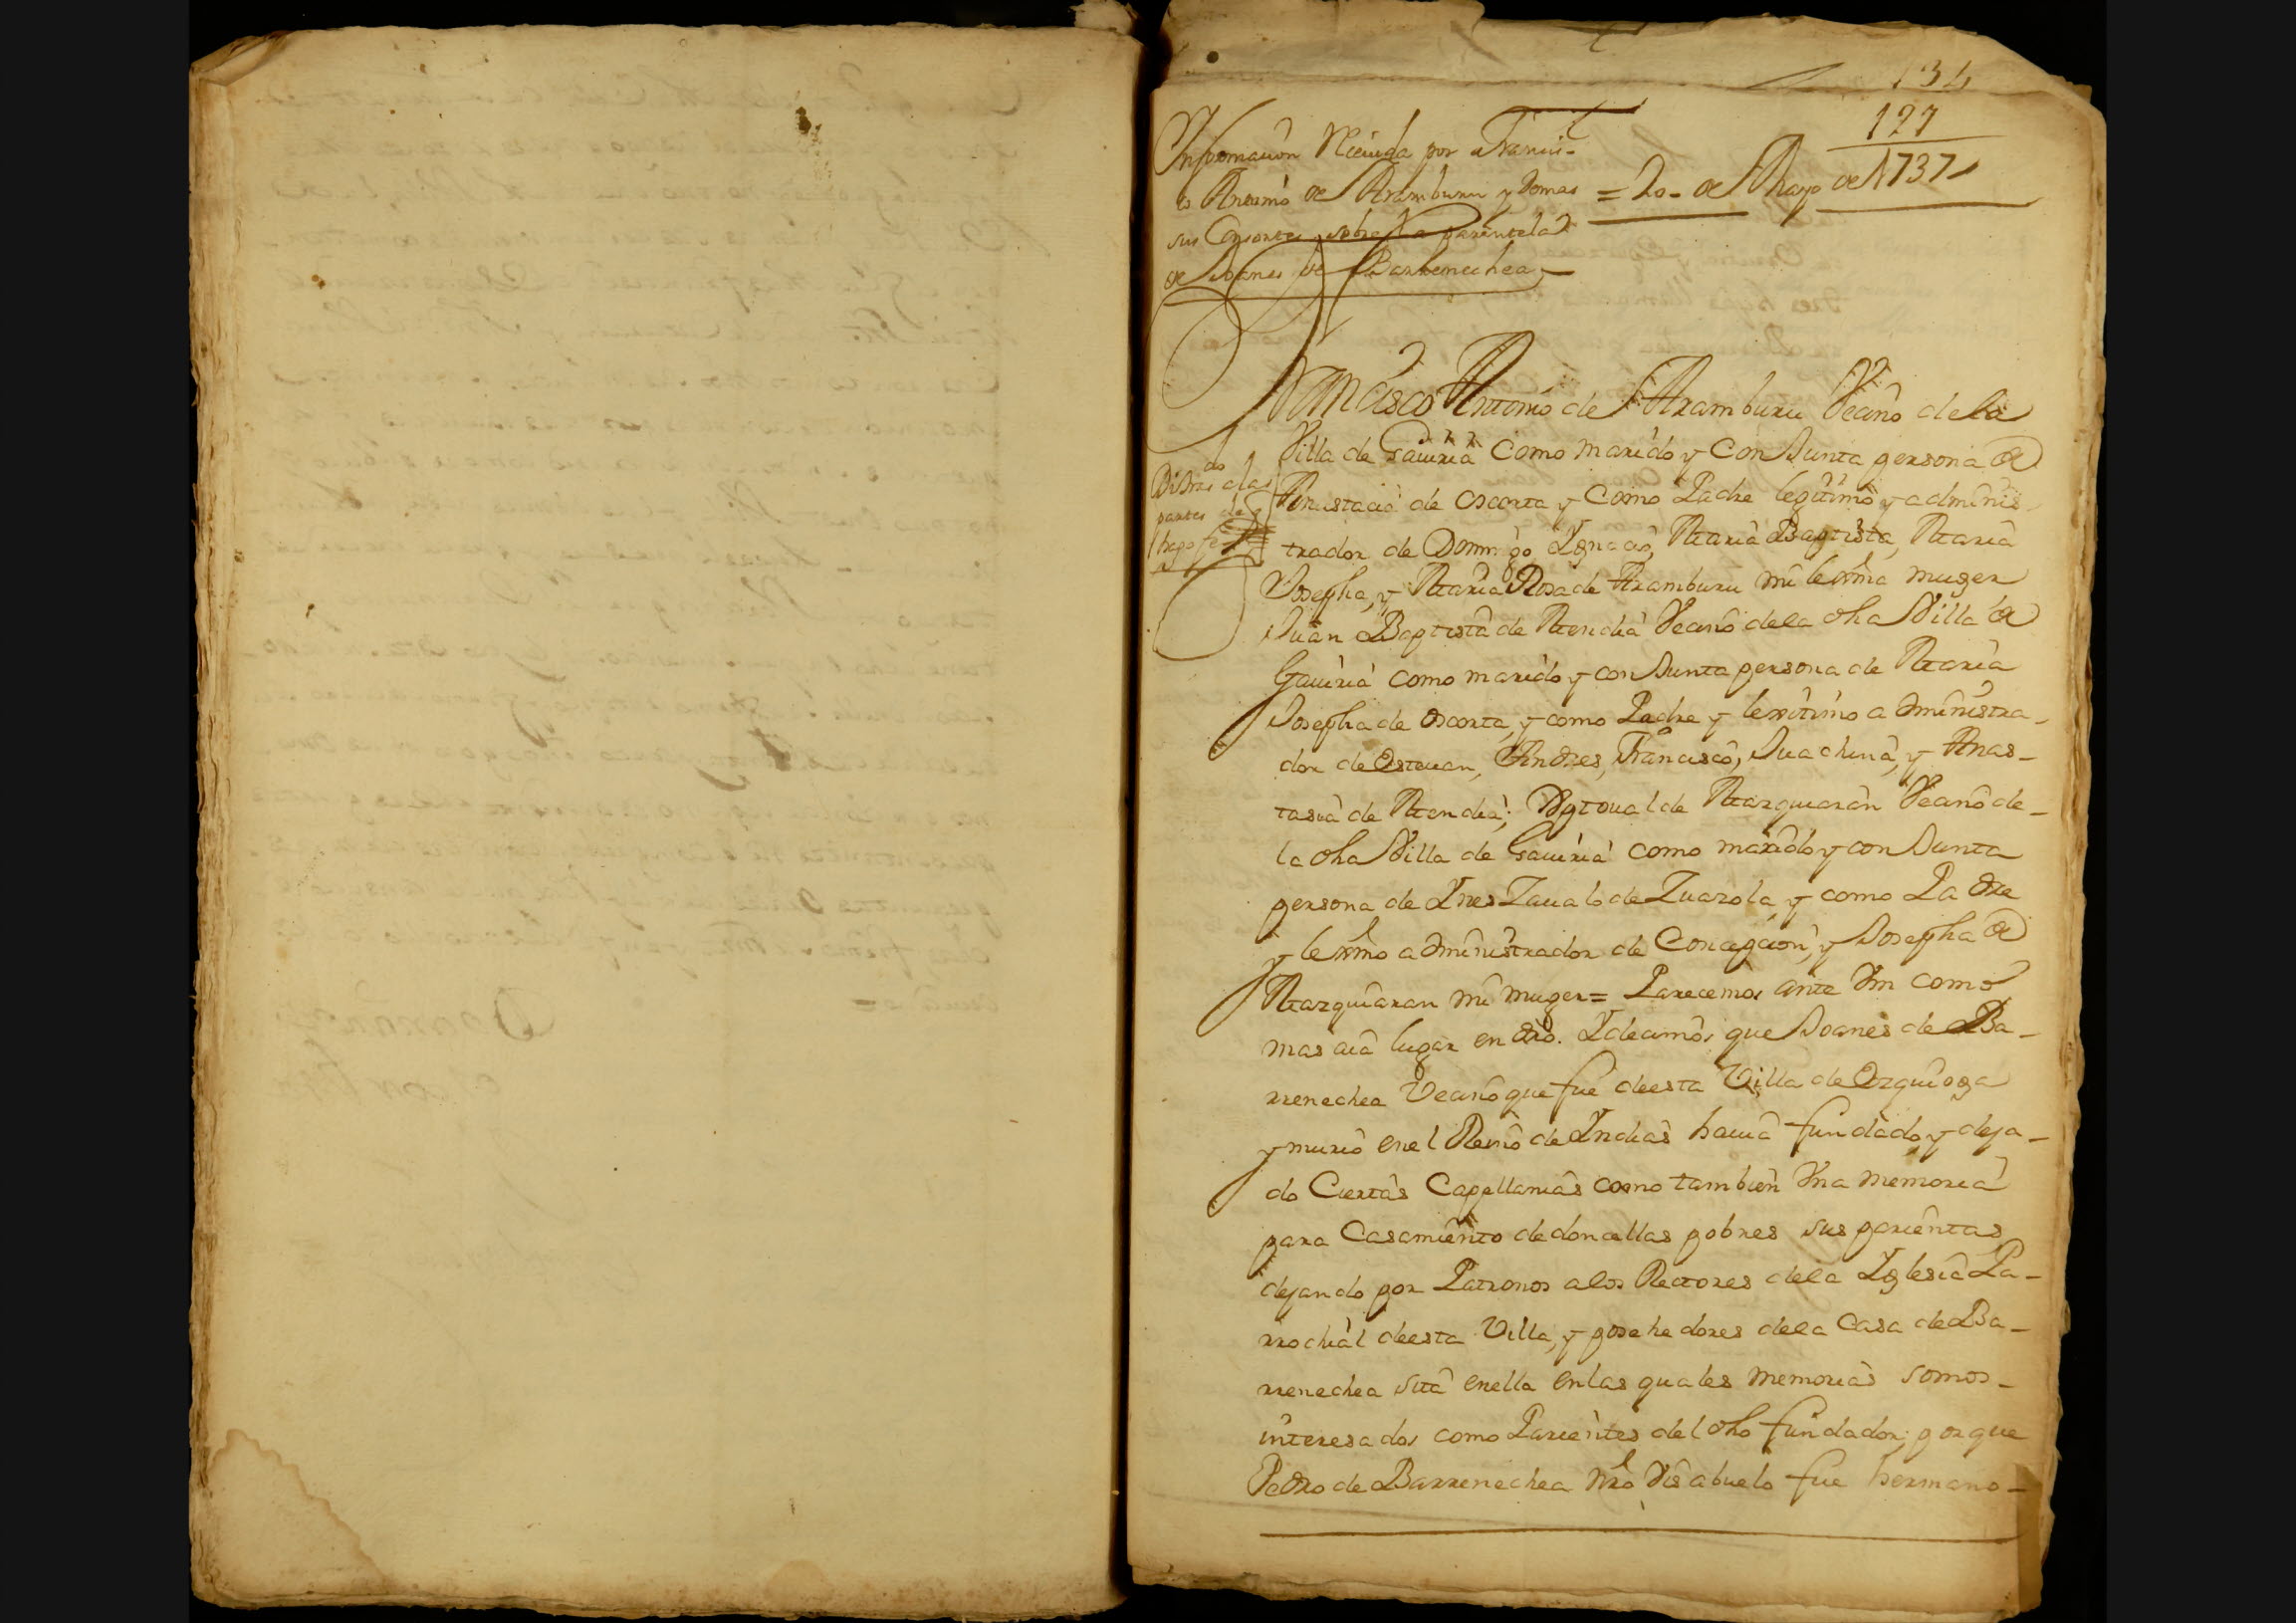 134
127
Informacion Recivida por Francis-
co Antonio de Aramburu y demas
sus Consortes sobre la parentela
de Joanes de Barrenechea
= 20 - de Mayo de 1737
Francisco Antonio de Aramburu Vecino de la
Villa de Gaviria Como marido y Conjunta persona de
Anastacia de Oscorta y Como Padre legitimo y adminis-
trador de Domingo Ignacio, Maria Baptista, Maria
Josepha, y Maria Rosa de Aramburu mi lexma muger
Juan Baptista de Mendia Vecino de la dha Villa de
Gaviria como marido y conjunta persona de Maria
Josepha de Oscorta, y como Padre y lexitimo administra-
dor de Estevan, Andres, Francisco, Juachina, y Anas-
tasia de Mendia; Xptoual de Marquiaran Vecino de-
la dha Villa de Gaviria como marido y conjunta
persona de Ines Zavalo de Zuazola, y como Padre
y lexmo administrador de Concepcion, y Josepha de
Marquiaran mi muger = Parecemos ante Vm como
mas aia lugar en dro. I decimos que Joanes de Ba-
rrenechea Vecino que fue de esta Villa de Ezquioga
y murio en el Reino de Indias havia fundado, y deja-
do Ciertas Capellanias como tambien Vna memoria
para Casamiento de doncellas pobres sus parientas
dejando por Patronos a los Rectores de la Iglesia Pa-
rrochial de esta Villa, y posehedores de la Casa de Ba-
rrenechea sita en ella en las quales memorias somos-
interesados como Parientes del dho fundador; porque
Pedro de Barrenechea nro Visabuelo fue hermano-
Di tras do a las
partes de q
hago fe